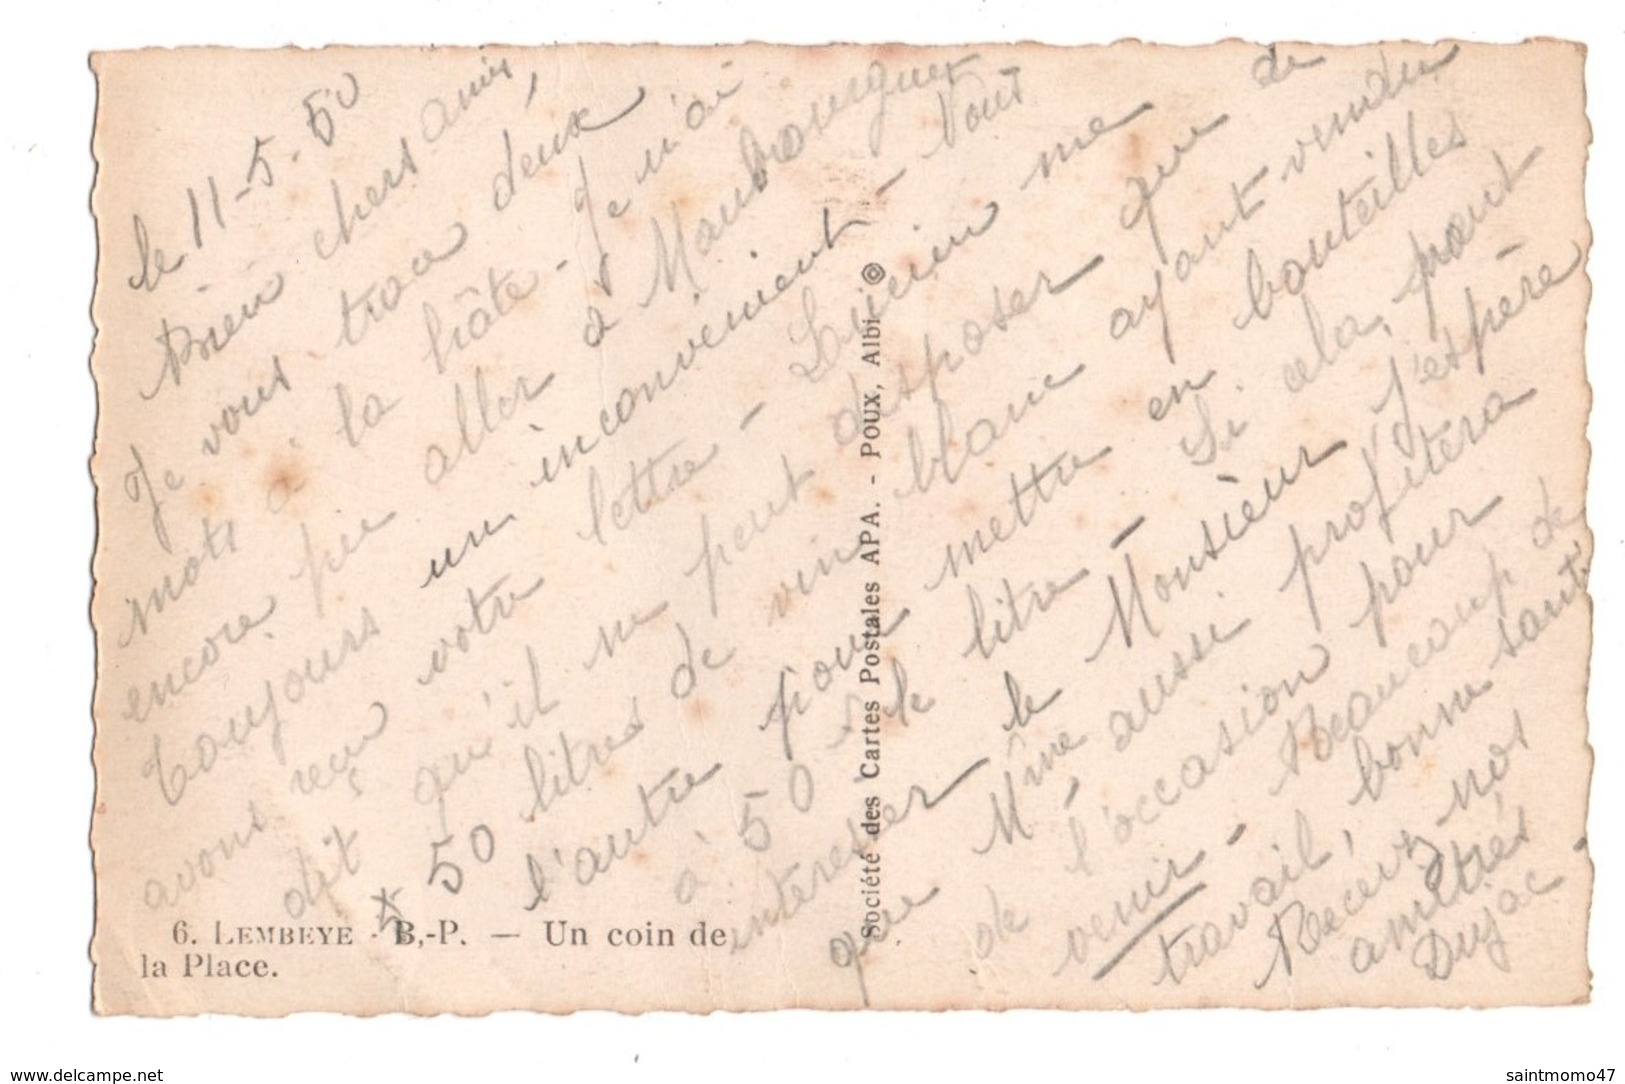 le 11-5-50
Bien chers amis,
Je vous trace deux
mots à la hâte - Je n'ai
encore pu aller à Maubourguet
toujours un inconvenient - Nous
avons reçu votre lettre - Lucien me
dit qu'il ne peut disposer que de
50 litres de vin blanc ayant vendu
l'autre pour mettre en bouteilles
à 50 F le litre - Si cela peut
interesser le Monsieur J'espère
que Mme aussi profitera
de l'occasion pour
venir - Beaucoup de
travail, bonne santé
Recevez nos
amitiés
Dujac -
6. LEMBEYE - B,-P. — Un coin de
la Place.
Société des Cartes Postales APA. - POUX, Albi ©
www.delcampe.net
saintmomo47